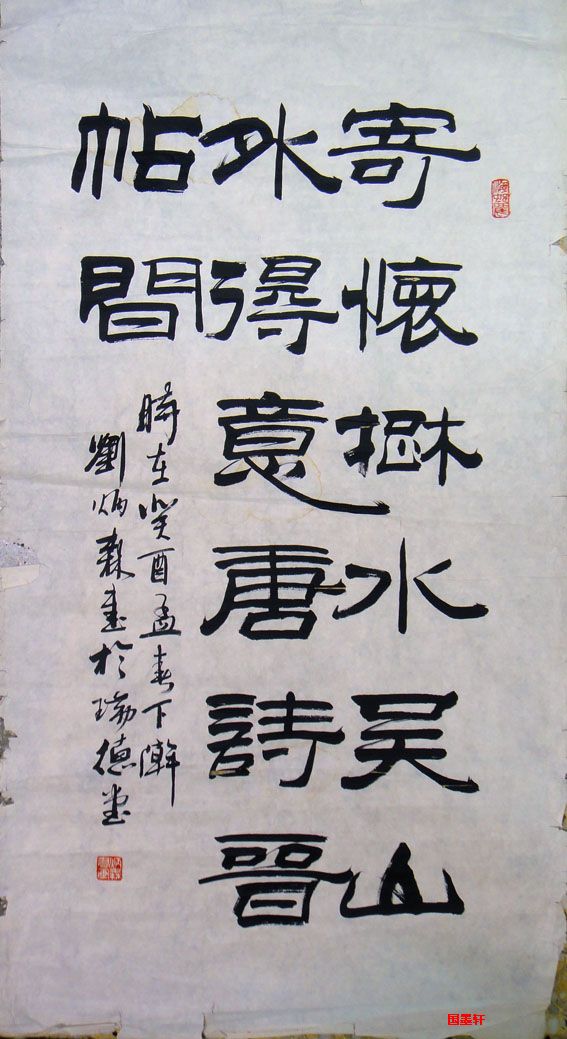 寄懷楚水吳山
外得意唐詩晉
帖間
時在癸酉孟春下澣
劉炳森書於瑞德堂
国墨轩